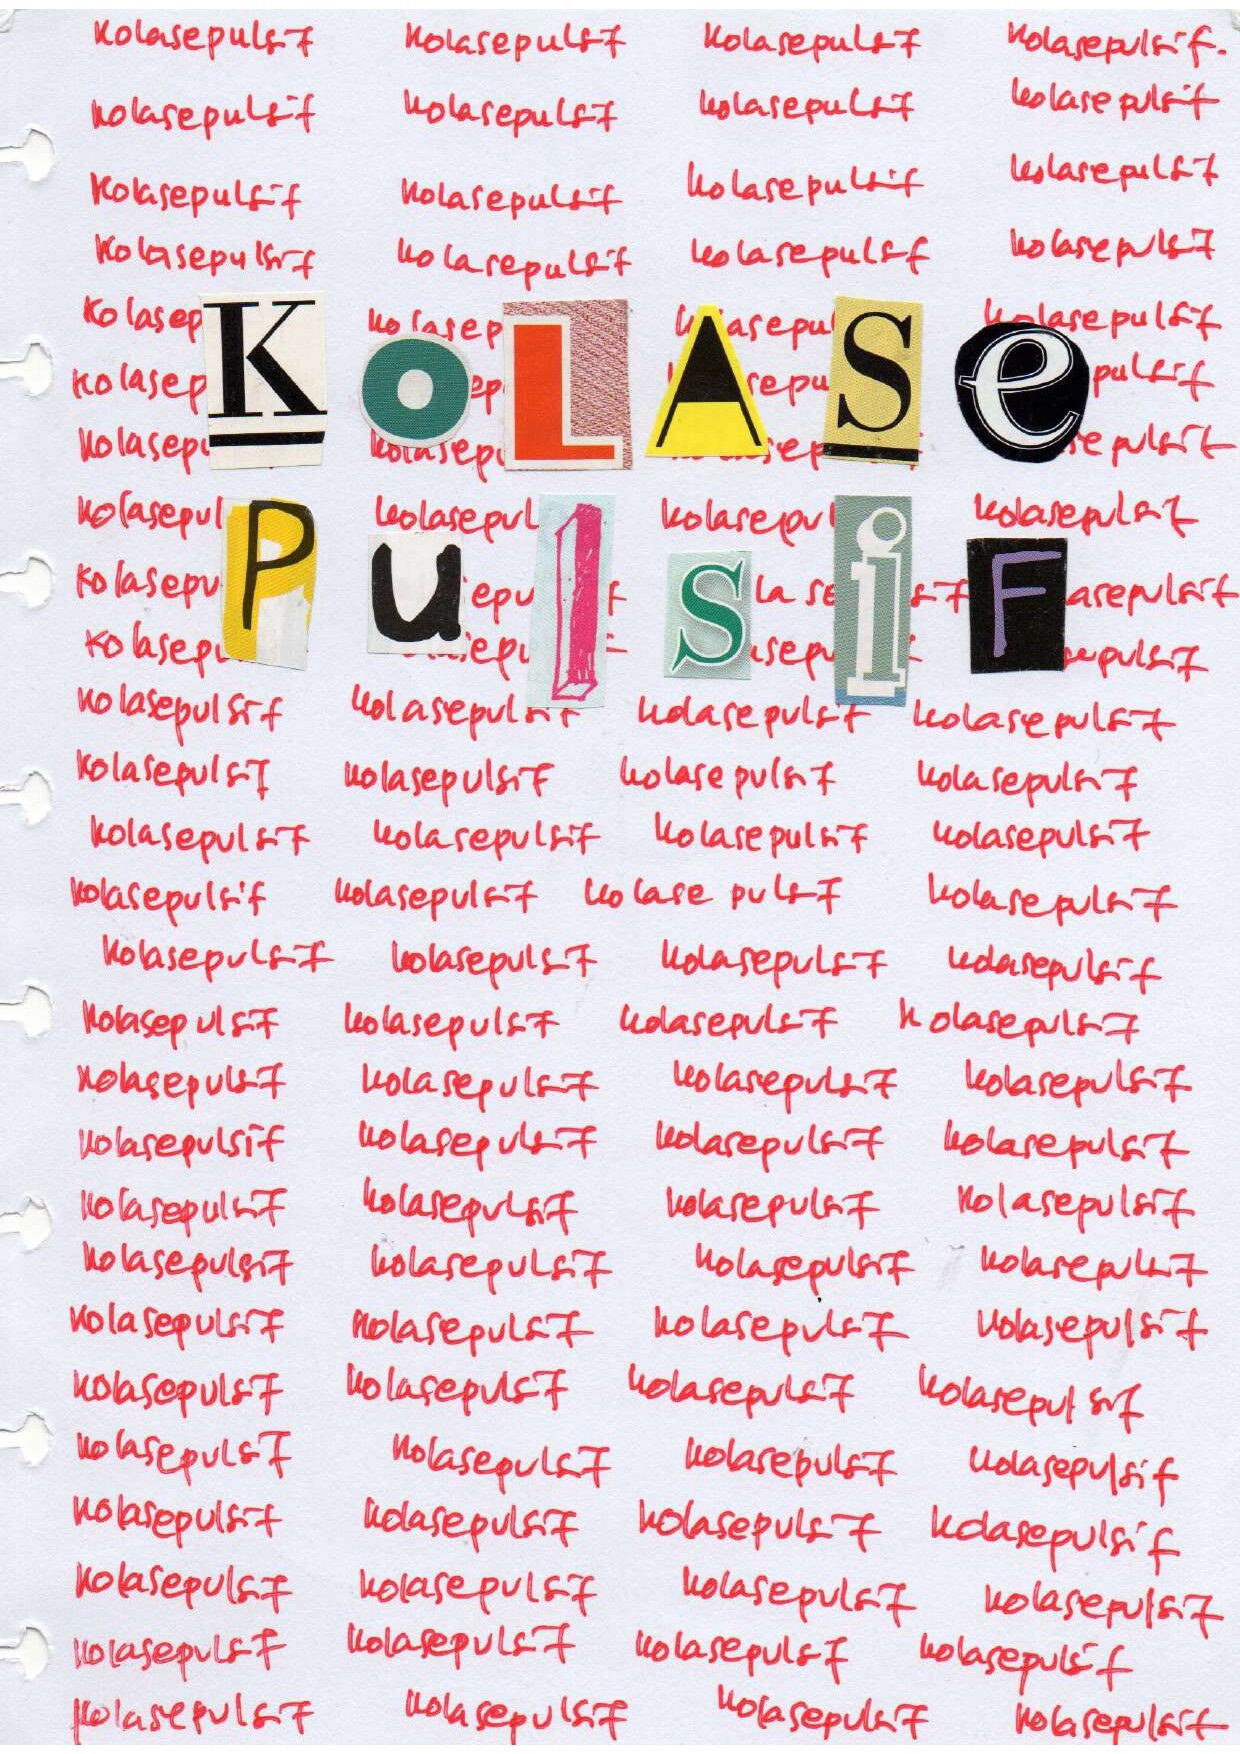 kolasepulsif kolasepulsif kolasepulsif kolasepulsif.
kolasepulsif kolasepulsif kolasepulsif kolasepulsif
kolasepulsif kolasepulsif kolasepulsif kolasepulsif
kolasepulsif kolasepulsif kolasepulsif kolasepulsif
kolasep kolasep kolasepulsif
KOLASe
kolasep ep sepu pulsif
kolasepu kolasepu sep epulsif
kolasepul kolasepul kolasepul kolasepulsif
PulsiF
kolasepu epu lase asepulsif
kolasepu sepu sepu sepulsif
kolasepulsif kolasepulsif kolasepulsif kolasepulsif
kolasepulsif kolasepulsif kolase pulsif kolasepulsif
kolasepulsif kolasepulsif kolasepulsif kolasepulsif
kolasepulsif kolasepulsif kolase pulsif kolasepulsif
kolasepulsif kolasepulsif kolasepulsif kolasepulsif
kolasepulsif kolasepulsif kolasepulsif kolasepulsif
kolasepulsif kolasepulsif kolasepulsif kolasepulsif
kolasepulsif kolasepulsif kolasepulsif kolasepulsif
kolasepulsif kolasepulsif kolasepulsif kolasepulsif
kolasepulsif kolasepulsif kolasepulsif kolasepulsif
kolasepulsif kolasepulsif kolasepulsif kolasepulsif
kolasepulsif kolasepulsif kolasepulsif kolasepulsif
kolasepulsif kolasepulsif kolasepulsif kolasepulsif
kolasepulsif kolasepulsif kolasepulsif kolasepulsif
kolasepulsif kolasepulsif kolasepulsif kolasepulsif
kolasepulsif kolasepulsif kolasepulsif kolasepulsif
kolasepulsif kolasepulsif kolasepulsif kolasepulsif